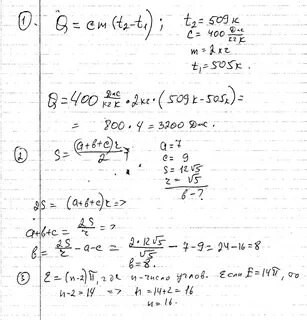 1. Q = cm(t₂-t₁) ; t₂ = 509 К
c = 400 Дж/кг К
m = 2 кг
t₁ = 505 К.
Q = 400 Дж/кг К · 2 кг · (509 К - 505 К) =
= 800 · 4 = 3200 Дж.
2 S = (a+b+c)r/2 a = 7
c = 9
S = 12√5
r = √5
b - ?
2S = (a+b+c)r =>
a+b+c = 2S/r =>
b = 2S/r - a - c = 2·12√5/√5 - 7 - 9 = 24 - 16 = 8
b = 8.
3 Σ = (n-2)π, где n - число углов. Если Σ = 14π, то
n-2 = 14 => n = 14+2 = 16
n = 16.